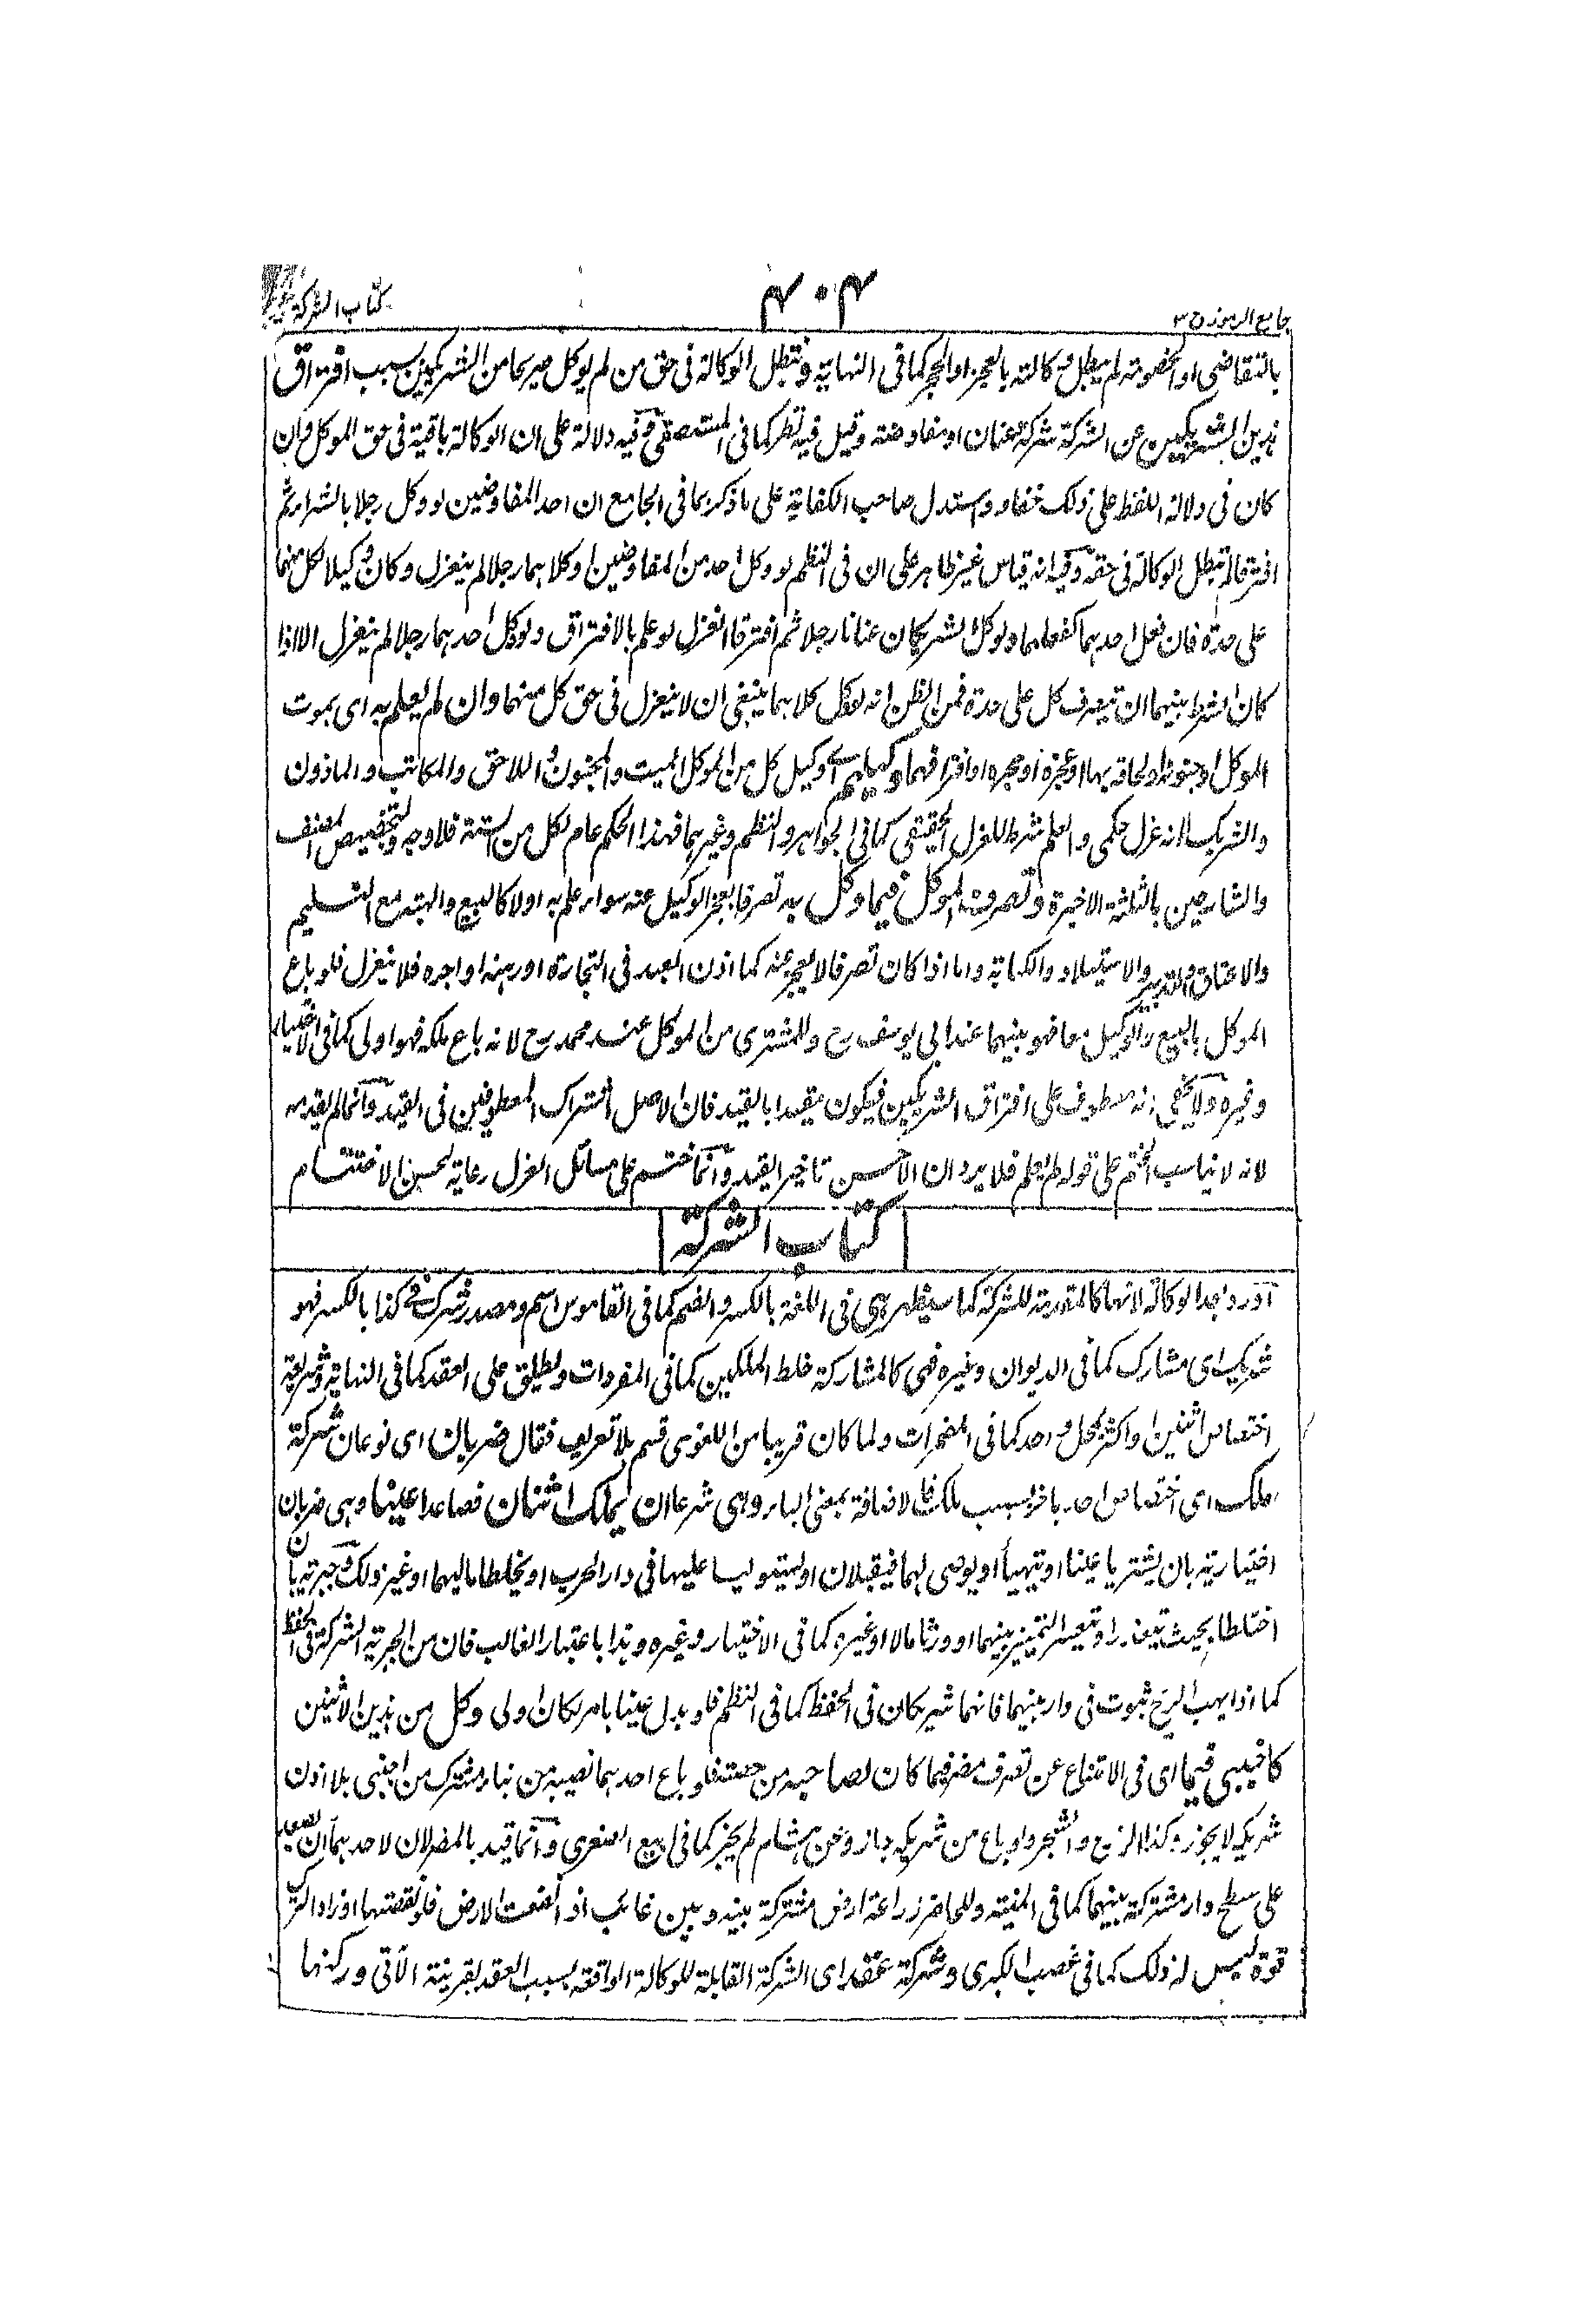 جامع الرموز ج ٣
٤٠٤
كتاب الشركة
بالتقاضى او الخصومة لم يبطل وكالته بالعجز او الحجر كما فى النهاية وتبطل الوكالة فى حق من لم يوكل صريحا من الشريكين بسبب افتراق
هذين الشريكين عن الشركة شركة عنان او مفاوضة وقيل فيه نظر كما فى المستصفى وفيه دلالة على ان الوكالة باقية فى حق الموكل وان
كان فى دلالة اللفظ على ذلك خفاء واستدل صاحب الكفاية على ما ذكر بما فى الجامع ان احد المفاوضين لو وكل رجلا بالشراء ثم
افترقا لم تبطل الوكالة فى حقه وفيه انه قياس غير ظاهر على ان فى النظم لو وكل احد من المفاوضين او كلاهما رجلا لم ينعزل وكان وكيلا لكل منهما
على حدة فان فعل احدهما كفعلهما ولو وكل الشريكان عنانا رجلا ثم افترقا انعزل لو علم بالافتراق ولو وكل احدهما رجلا لم ينعزل الا اذا
كان الشرط بينهما ان تصرف كل على حدة فمن الظن انه لو وكل كلاهما ينبغى ان لا ينعزل فى حق كل منهما وان لم يعلم به اى بموت
الموكل او جنونه او لحاقه بها او عجزه او حجره او افتراقهما وكيلهم اى وكيل كل من الموكل الميت والمجنون واللاحق والمكاتب والماذون
والشريك لانه عزل حكمى والعلم شرط للعزل الحقيقى كما فى الجواهر والنظم وغيرهما فهذا الحكم عام لكل من الستة فلا وجه لتخصيص المصنف
والشارحين بالثلثة الاخيرة وتصرف الموكل فيما وكل به تصرفا يعجز الوكيل عنه سواء علم به اولا كالبيع والهبة مع التسليم
والاعتاق والتدبير والاستيلاد والكتابة واما اذا كان تصرفا لا يعجز عنه كما اذن العبد فى التجارة او رهنه او اجره فلا ينعزل فلو باع
الموكل بالبيع والوكيل معا فهو بينهما عند ابى يوسف رح وللمشترى من الموكل عند محمد رح لانه باع ملكه فهو اولى كما فى الاختيار
وغيره ولا يخفى انه معطوف على افتراق الشريكين فيكون مقيدا بالقيد فان الاصل اشتراك المعطوفين فى القيد وانما لم يقدمه
لانه لا يناسب الختم على قوله لم يعلم فلا يرد ان الاحسن تاخير القيد وانما ختم على مسائل العزل رعاية لحسن الاختتام
كتاب الشركة
اورد بعد الوكالة لانها كالمقدمة للشركة كما سيظهر وهى فى اللغة بالكسر والضم كما فى القاموس اسم ومصدر شرك فى كذا بالكسر فهو
شريك اى مشارك كما فى الديوان وغيره فهى كالمشاركة خلط الملكين كما فى المفردات ويطلق على العقد كما فى النهاية وشريعة
اختصاص اثنين او اكثر بمحل واحد كما فى المضمرات ولما كان قريبا من اللغوى قسم بلا تعريف فقال ضربان اى نوعان شركة
ملك اى اختصاص احد باخر بسبب ملك فالاضافة بمعنى الباء وهى شرعا ان يملك اثنان فصاعدا عينا وهى ضربان
اختيارية بان يشتريا عينا او يتهبا او يوصى لهما فيقبلان او يستوليا عليها فى دار الحرب او يخلطا ماليهما او غير ذلك وجبرية بان
اختلطا بحيث يتعذر او يتعسر التمييز بينهما او ورثا مالا او غيره كما فى الاختيار وغيره وهذا باعتبار الغالب فان من الجبرية الشركة فى الحفظ
كما اذا يهب الريح بثوب فى دار بينهما فانهما شريكان فى الحفظ كما فى النظم فلو بدل عينا بامر لكان اولى وكل من هذين الاثنين
كاجنبى فيما اى فى الامتناع عن تصرف مضر فيما كان لصاحبه من حصته فلو باع احدهما نصيبه من بناء مشترك من اجنبى بلا اذن
شريكه لا يجوز وكذا الزرع والشجر ولو باع من شريكه جاز وعن هشام لم يجز كما فى بيع الصغرى وانما قيد بالمضر لان لاحدهما ان يصعد
على سطح دار مشتركة بينهما كما فى المنية وللحاضر زراعة ارض مشتركة بينه وبين غائب اذا نفعت الارض فلو نقصتها او زاد الترك
قوة ليس له ذلك كما فى غصب الكبرى وشركة عقد اى الشركة القابلة للوكالة الواقعة بسبب العقد بقرينة الاتى وركنها